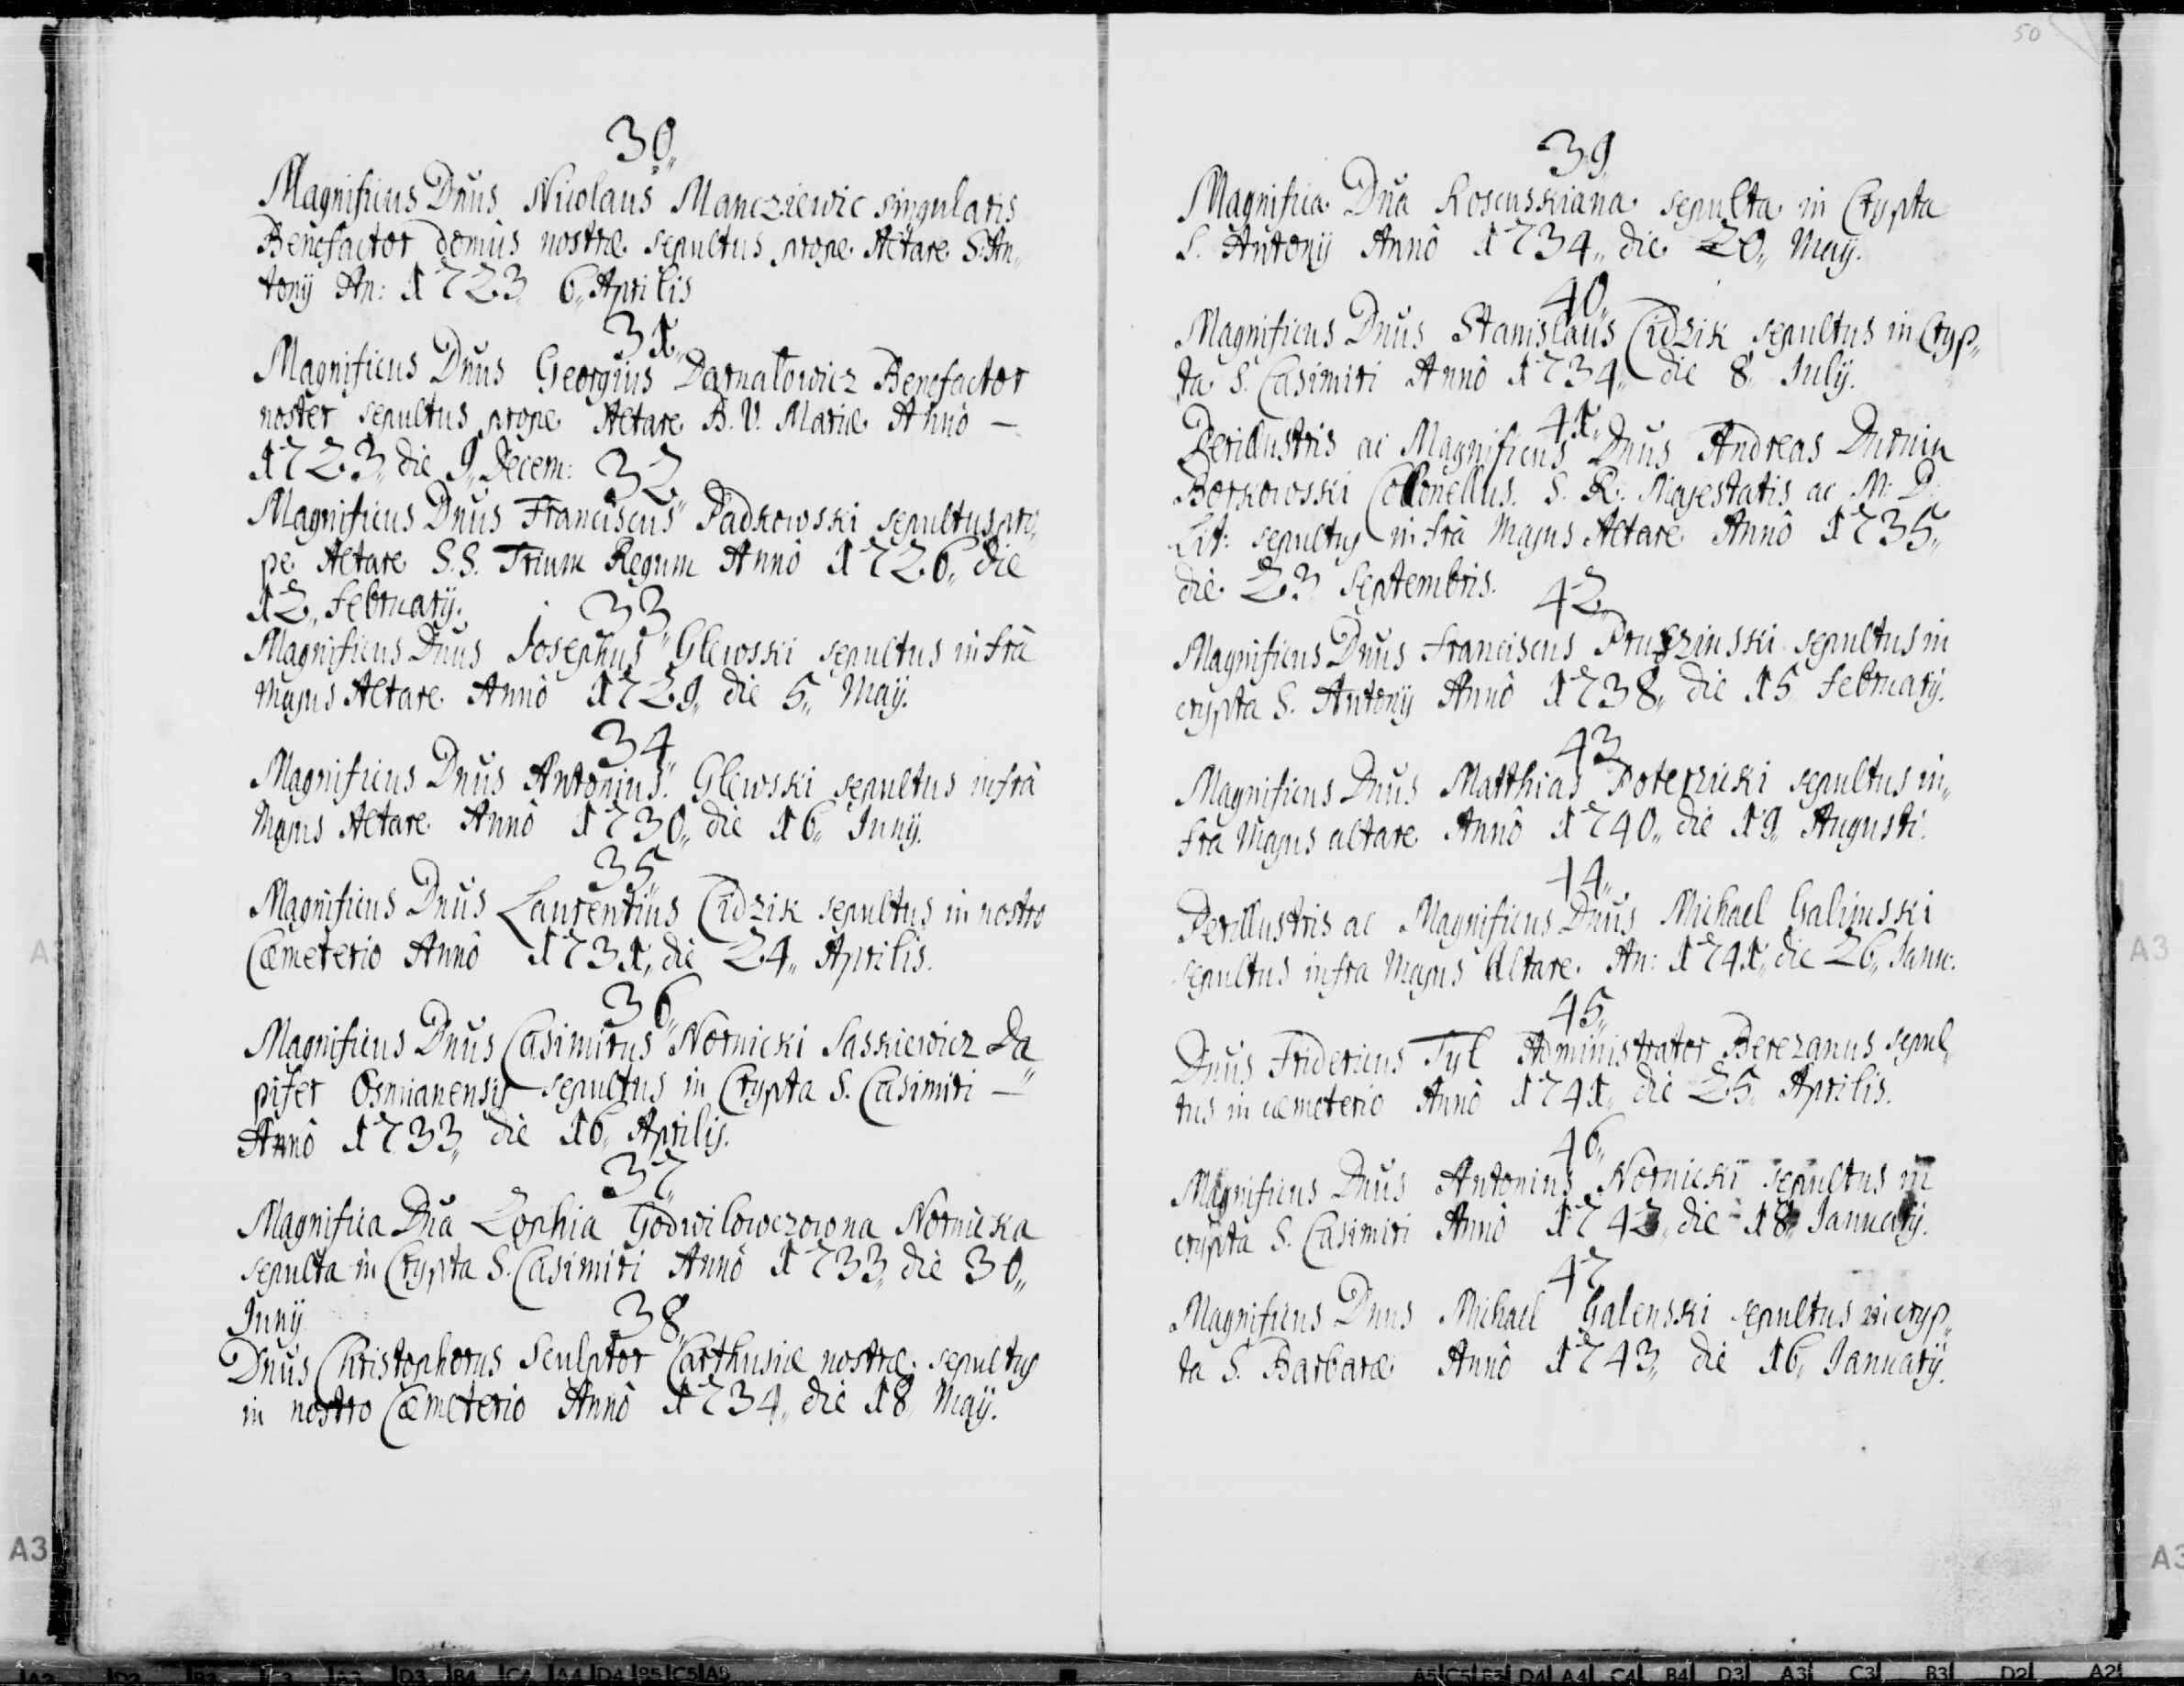 50
30,,
Magnificus Dnûs Nicolaus Mancziewic singularis
Benefactor domûs nostræ sepultus prope Altare S. An„
tonij An: 1723 6„ Aprilis
31„
Magnificus Dnûs Georgius Darnalowicz Benefactor
noster sepultus prope Altare B. V. Mariæ Annô —
1723„ die 9„ Decem:
32„
Magnificus Dnûs Franciscus Padkowski sepultus pro„
pe Altare S.S. Trium Regum Annô 1726„ die
12„ February.
33„
Magnificus Dnûs Josephus Glewski sepultus infrà
Majus Altare Annô 1729„ die 5„ Maij.
34„
Magnificus Dnûs Antonius Glewski sepultus infrà
Majus Altare Annô 1730„ die 16„ Junij.
35„
Magnificus Dnûs Laurentius Cidzik sepultus in nostro
Cæmeterio Annô 1731„ die 24„ Aprilis.
36„
Magnificus Dnûs Casimirus Nornicki Saskiewicz Da„
pifer Osmianensis sepultus in Crypta S. Casimiri —
Annô 1733„ die 16„ Aprilis.
37„
Magnifica Dna Zophia Godwilowczowna Nornicka
sepulta in Crypta S. Casimiri Annô 1733„ die 30„
Junij
38„
Dnûs Christophorus Sculptor Carthusiæ nostræ sepultus
in nostro Cæmeterio Annô 1734„ die 18„ Maij.
39„
Magnifica Dna Koscuskiana sepulta in Crypta
S. Antonij Annô 1734„ die 20„ Maij.
40„
Magnificus Dnûs Stanislaus Cidzik sepultus in Cryp„
ta S. Casimiri Annô 1734„ die 8„ Julij.
41„
Perillustris ac Magnificus Dnûs Andreas Durnin
Borkowski Collonellus. S. R. Majestatis ac M. D.
Lit: sepultus infrà Majus Altare Annô 1735„
die 23 Septembris.
42„
Magnificus Dnûs Franciscus Pruszinski sepultus in
crypta S. Antonij Annô 1738„ die 15 February.
43„
Magnificus Dnûs Matthias Poterzicki sepultus in„
fra Majus altare Annô 1740„ die 19„ Augusti.
44„
Perillustris ac Magnificus Dnûs Michael Galinski
sepultus infra Majus Altare. An: 1741„ die 26„ Janu:
45„
Dnûs Fridericus Tyl Administrator Berezanus sepul„
tus in cæmeterio Annô 1741„ die 25„ Aprilis.
46„
Magnificus Dnûs Antonius Nornicki sepultus in
crypta S. Casimiri Annô 1742„ die 18„ January.
47„
Magnificus Dnûs Michael Galenski sepultus in cryp„
ta S. Barbaræ Annô 1743„ die 16„ January.